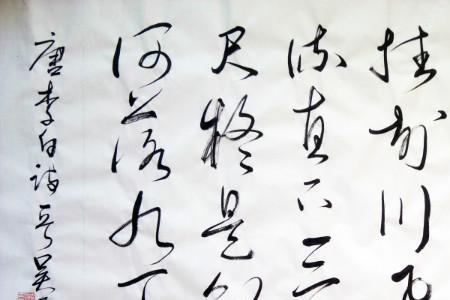 挂前川飞
流直下三
尺疑是
河落九天
唐李白诗吴